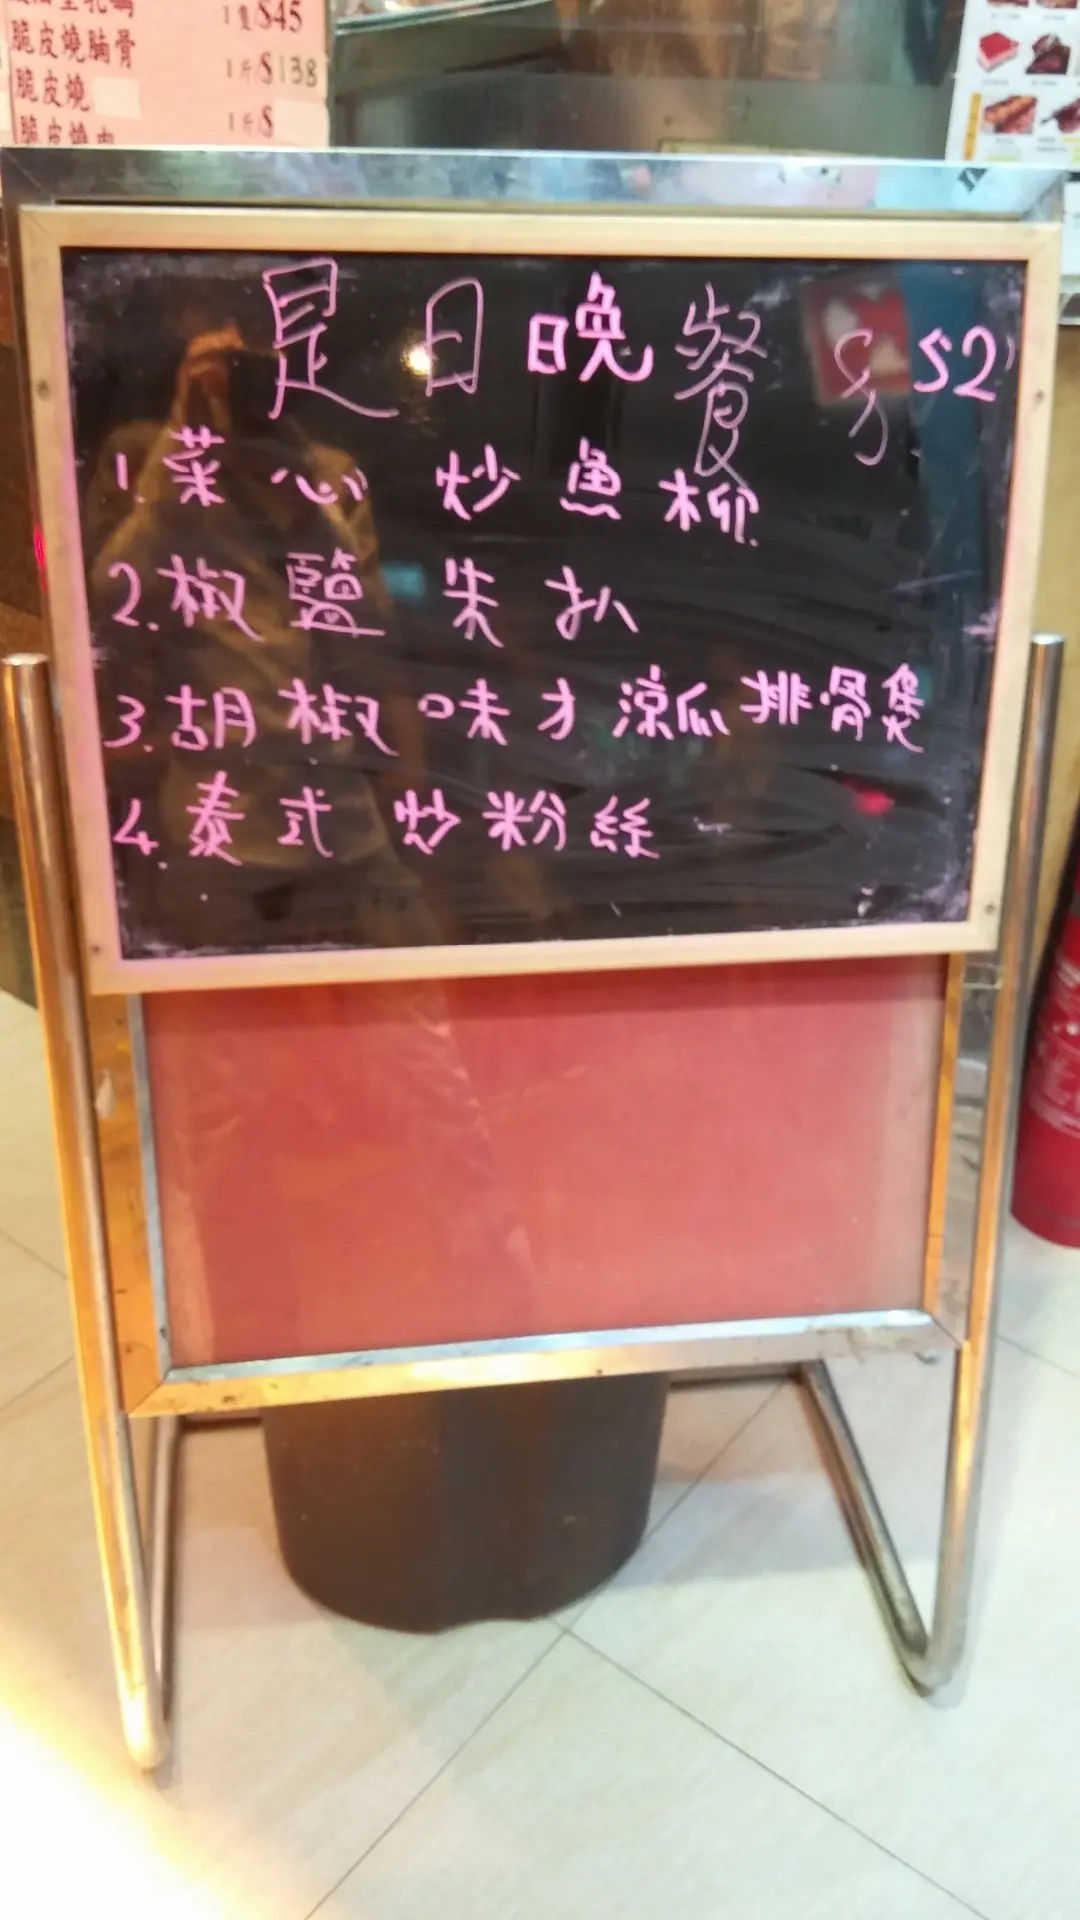 1隻$45
脆皮燒腩骨 1斤$138
脆皮燒 1斤$
脆皮燒肉
是日晚餐 $52
1.菜心炒魚柳
2.椒鹽朱扒
3.胡椒味才涼瓜排骨煲
4.泰式炒粉絲